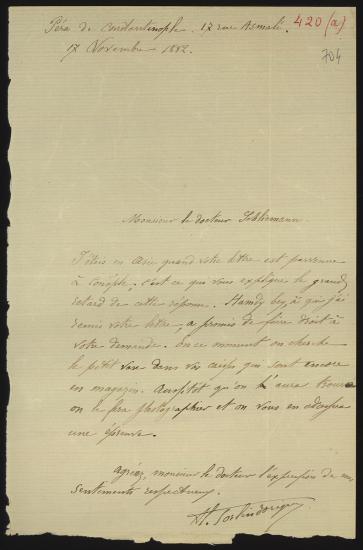 Péra de Constantinople. 17 rue Asmali. 420 (a)
17 Novembre 1882. 704
Monsieur le docteur Schliemann.
J'étais en Asie quand votre lettre est parvenue
à Constple, c'est ce qui vous explique le grand
retard de cette réponse. Hamdy bey, à qui j'ai
remis votre lettre, a promis de faire droit à
votre demande. En ce moment on cherche
le petit vase dans vos caisses qui sont encore
en magasin. Aussitôt qu'on l'aura trouvé
on le fera photographier et on vous en adressera
une épreuve.
Agréez, monsieur le docteur l'expression de mes
sentiments respectueux.